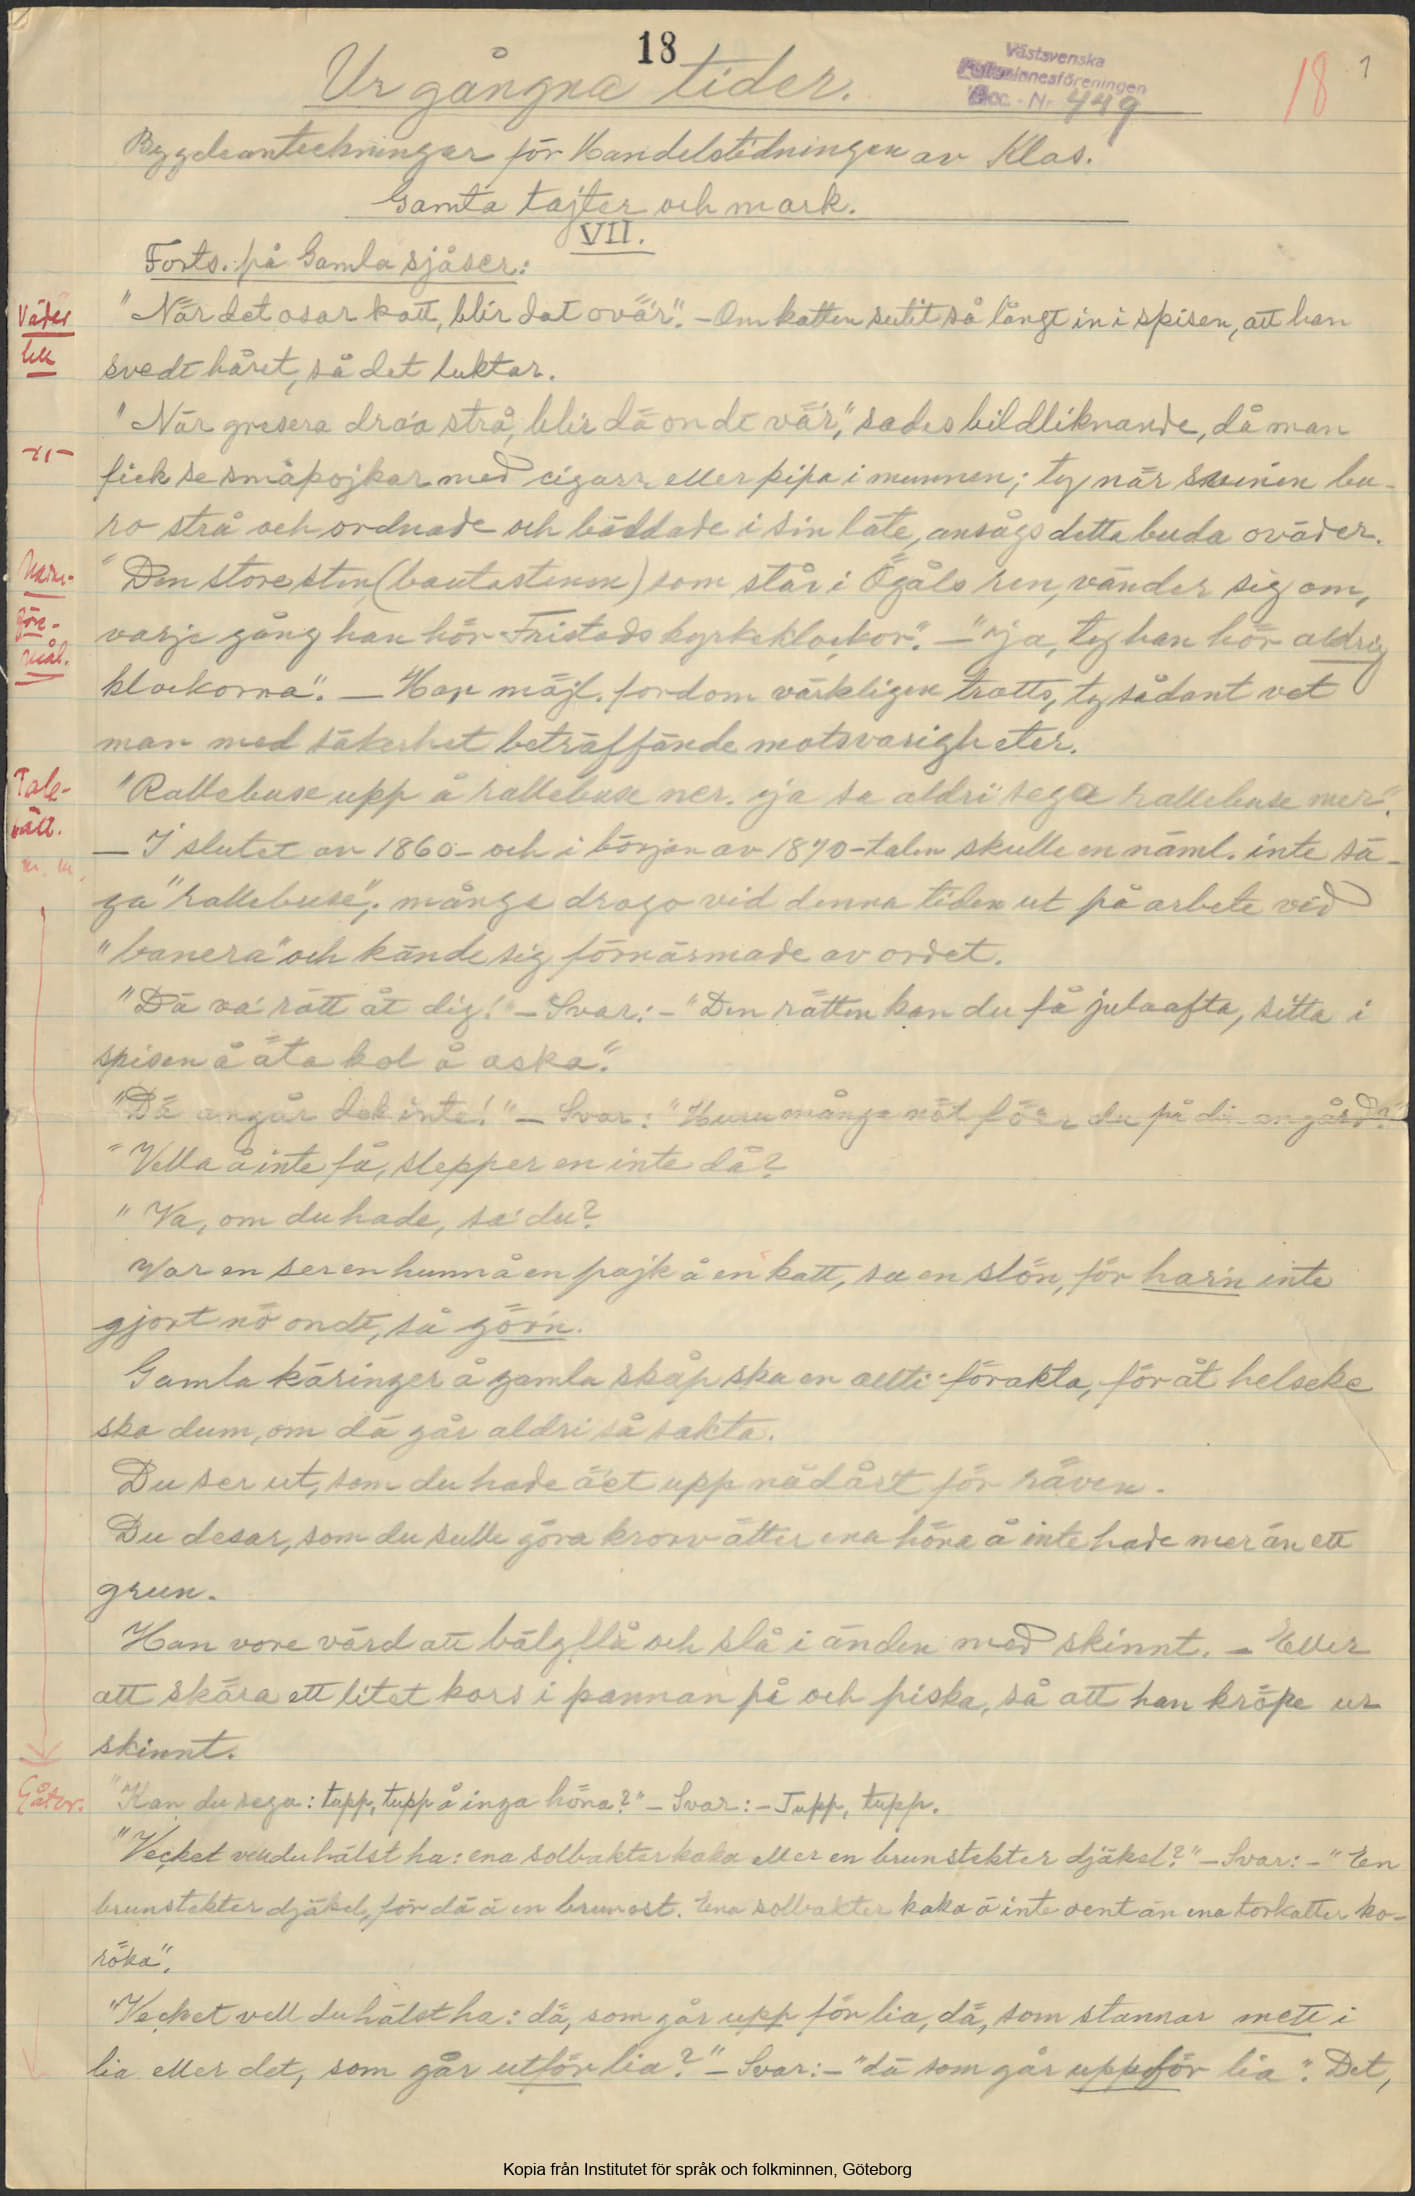 18
Ur gångna tider.
Västsvenska
Folkminnesföreningen
Acc. - Nr 449
18
1
Bygdeanteckningar för Handelstidningen av Klas.
Gamla tajter och mark.
VII.
Forts. på Gamla sjåser:
Väder
"När det osar katt, blir dat ovär". - Om katten sutit så långt in i spisen, att han
svedt håret, så det luktar.
"När grisera dra'a strå, blir dä ondt vär", sades bildliknande, då man
-"-
fick se småpojkar med cigarr eller pipa i munnen; ty när svinen bu-
ro strå och ordnade och bäddade i sin läte, ansågs detta buda oväder.
"Den store sten (bautastenen) som står i Ögåls ren, vänder sig om,
före-
varje gång han hör Fristads kyrkeklockor". - "ja, ty han hör aldrig
mål.
klockorna". - Har möjl. fordom värkligen trotts, ty sådant vet
man med säkerhet beträffande motsvarigheter.
Tale-
"Rallebuse upp å rallebuse ner. ja sa aldri sega rallebuse mer".
sätt.
- I slutet av 1860- och i början av 1870-talen skulle en näml. inte sä-
m. m.
ga "rallebuse"; många drogo vid denna tiden ut på arbete vid
"banera" och kände sig förnärmade av ordet.
"Dä va' rätt åt dig!" - Svar: - "Den rätten kan du få julaafta, sitta i
spisen å äta kol å aska".
"Dä angår dek inte!" - Svar: "Huru många nöt föer du på din angård?"
"Vella å inte få, slepper en inte då?
"Va, om du hade, sa' du?
Var en ser en hunn å en pojk å en katt, sa en slön, för har'n inte
gjort nö ondt, så gör'n.
Gamla käringer å gamla skåp ska en allti förakta, för åt helseke
ska dum, om dä går aldri så sakta.
Du ser ut, som du hade äet upp nådår't för räven.
Du desar, som du sulle göra krorv ätter ena höna å inte hade mer än ett
grun.
Han vore värd att bälgflå och slå i änden med skinnt. - Eller
att skära ett litet kors i pannan på och piska, så att han kröpe ur
skinnt.
Gåtor.
"Kan du sega: tupp, tupp å inga höna?" - Svar: - Tupp, tupp.
"Vecket vell du hälst ha: ena solbakter kaka eller en brunstekter djäkel?" - Svar: - "En
brunstekter djäkel, för dä ä en brunost. Ena solbakter kaka ä inte vent än ena torkatter ko-
röka".
"Vecket vell du hälst ha: dä, som går upp för lia, dä, som stannar mett i
lia eller det, som går utför lia?" - Svar: - "dä som går uppför lia". Det,
Kopia från Institutet för språk och folkminnen, Göteborg